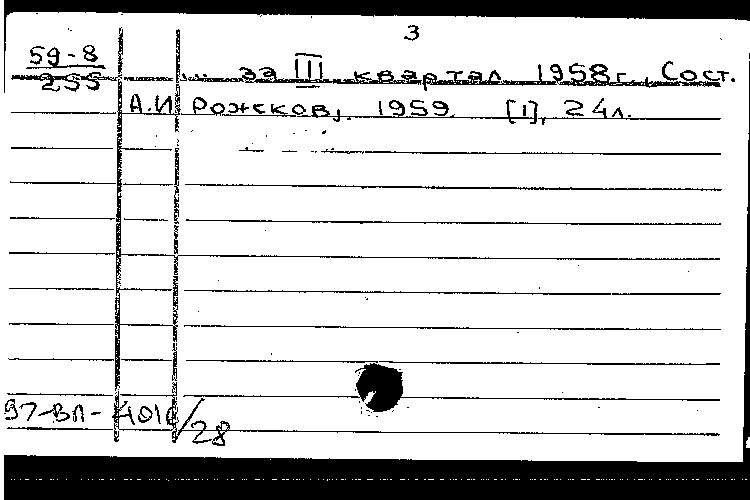 3
59-8
255
... за III квартал 1958г., Сост.
А.И Рожков, 1959. [1], 24л.
97-ВЛ-401
/28